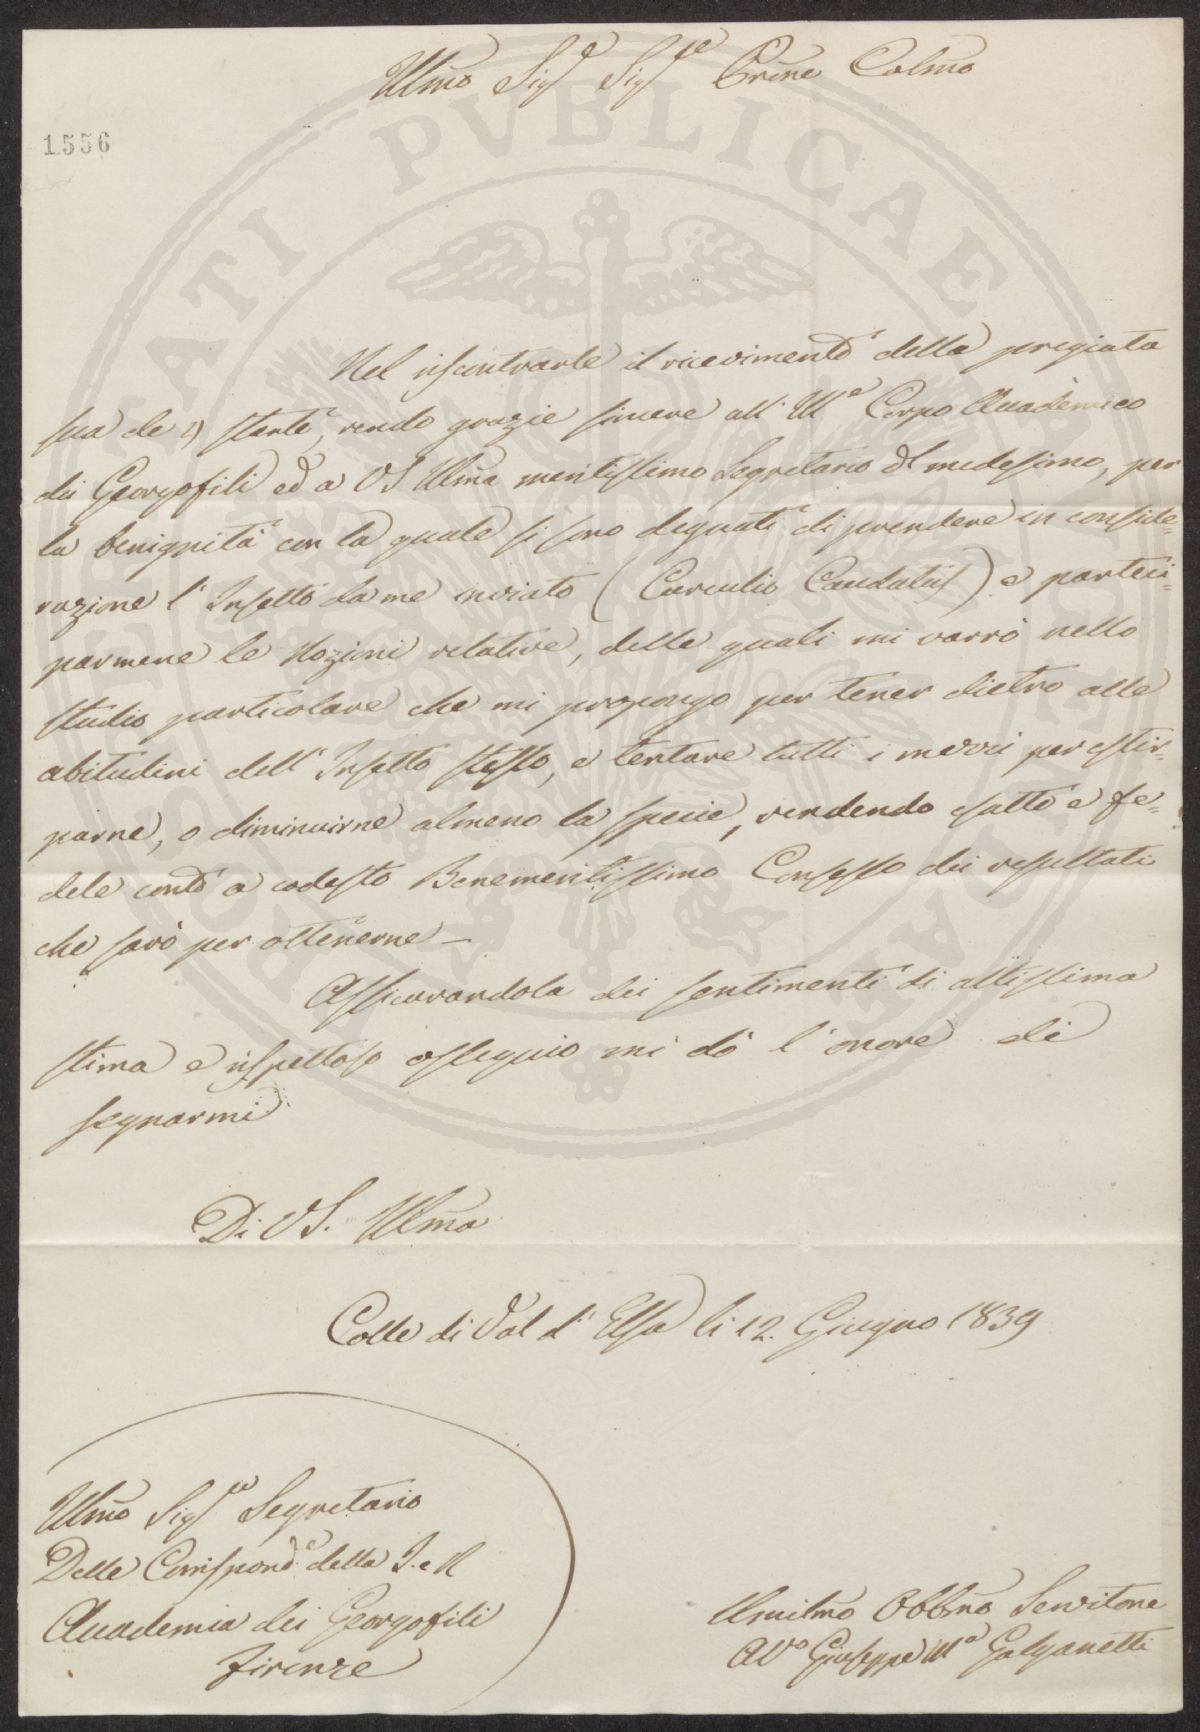 Illmo Sig.e Sig.re Prone Colmo
1556
PROSPERITATI PVBLICAE AVGENDAE
Nel riscontrarle il ricevimento della pregiata
sua de 9 stante, rendo grazie sincere all' Ill.e Corpo Accademico
dei Georgofili ed a VS Illma meritissimo Segretario del medesimo, per
la benignità con la quale si sono degnati di prendere in conside=
razione l' Insetto da me inviato (Curculio Caudatus) e parteci=
parmene le Nozioni relative, delle quali mi varrò nello
studio particolare che mi propongo per tener dietro alle
abitudini dell' Insetto stesso, e tentare tutti i mezzi per estir=
parne, o diminuirne almeno la specie, rendendo esatto e fe=
dele conto a codesto Benemeritissimo Consesso dei resultati
che sarò per ottenerne —
Assicurandola dei sentimenti di altissima
stima e rispettoso ossequio mi dò l' onore di
segnarmi
Di VS. Illma
Colle di Val d' Elsa li 12. Giugno 1839
Illmo Sig.re Segretario
Delle Corrispond.e della I. e R
Accademia dei Georgofili
Firenze
Umilmo Obbmo Servitore
Avo Giuseppe Ma Galganetti